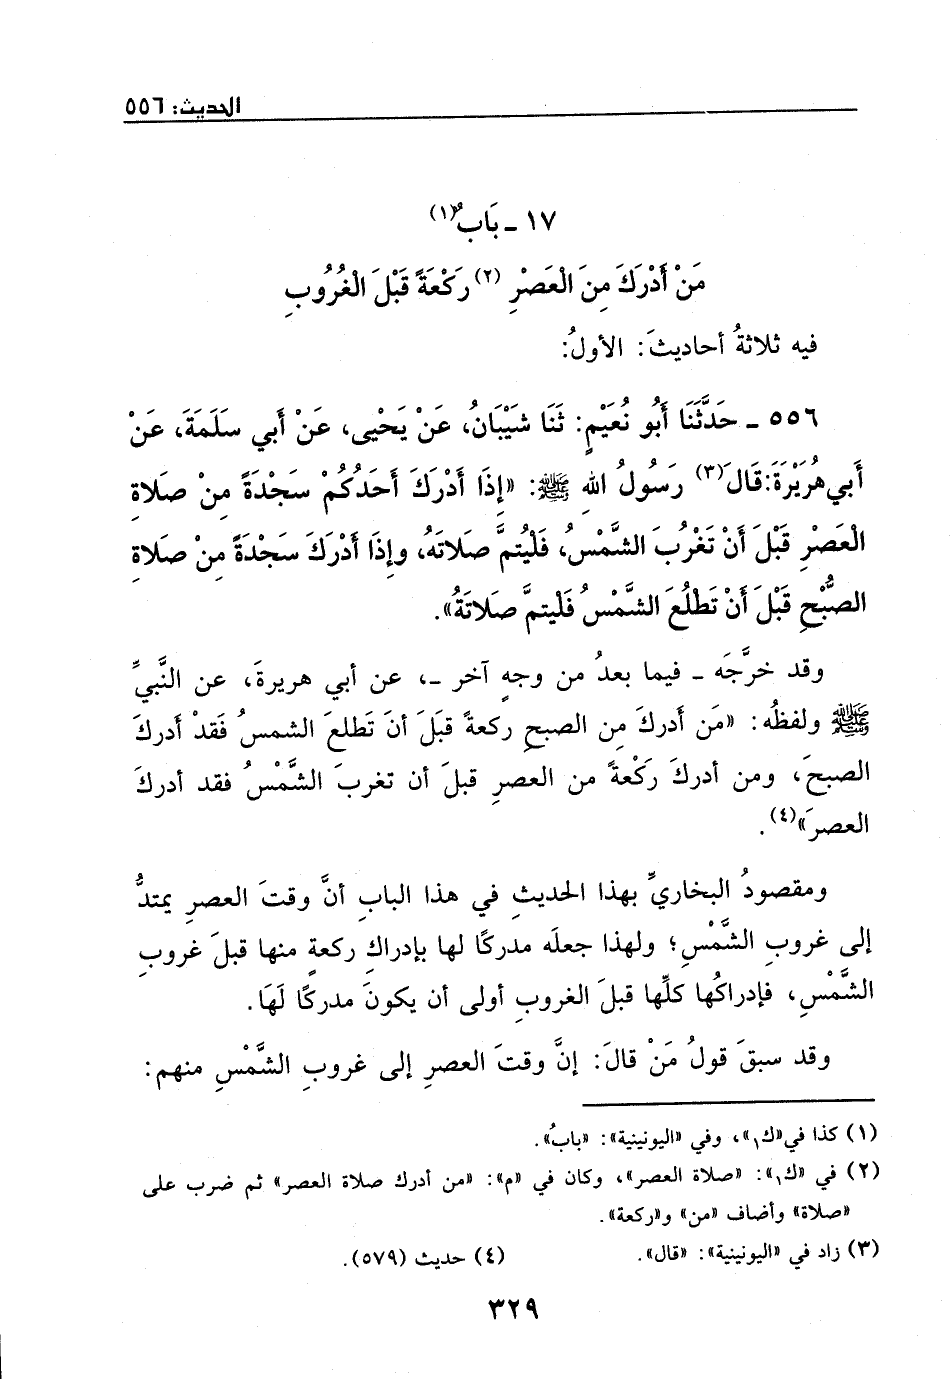 الحديث: ٥٥٦
١٧ - بَابٌ(١)
مَنْ أَدْرَكَ مِنَ الْعَصْرِ (٢) رَكْعَةً قَبْلَ الْغُرُوبِ
فيه ثلاثةُ أحاديثَ: الأولُ:
٥٥٦ - حَدَّثَنَا أَبُو نُعَيْمٍ: ثَنَا شَيْبَانُ، عَنْ يَحْيى، عَنْ أَبي سَلَمَةَ، عَنْ
أَبي هُرَيْرَةَ: قَالَ(٣) رَسُولُ اللهِ ﷺ: «إِذَا أَدْرَكَ أَحَدُكُمْ سَجْدَةً مِنْ صَلاةِ
الْعَصْرِ قَبْلَ أَنْ تَغْرُبَ الشَّمْسُ، فَلْيُتمَّ صَلاتَهُ، وإِذَا أَدْرَكَ سَجْدَةً مِنْ صَلاةِ
الصُّبْحِ قَبْلَ أَنْ تَطْلُعَ الشَّمْسُ فَلْيتمَّ صَلاتَهُ».
وقد خرَّجَه - فيما بعدُ من وجهٍ آخر -، عن أبي هريرةَ، عن النَّبيِّ
ﷺ ولفظُه: «مَن أَدركَ مِن الصبحِ ركعةً قَبَلَ أنَ تَطلعَ الشمسُ فَقدْ أَدركَ
الصبحَ، ومن أدركَ رَكْعةً من العصرِ قبلَ أن تغربَ الشَّمْسُ فقد أدركَ
العصرَ»(٤).
ومقصودُ البخاريِّ بهذا الحديثِ في هذا البابِ أنَّ وقتَ العصرِ يمتدُّ
إلى غروبِ الشَّمْسِ؛ ولهذا جعلَه مدركًا لها بإدراكِ ركعةٍ منها قبلَ غروبِ
الشَّمْسِ، فإدراكُها كلِّها قبلَ الغروبِ أولى أن يكونَ مدركًا لَهَا.
وقد سبقَ قولُ مَنْ قالَ: إنَّ وقتَ العصرِ إلى غروبِ الشَّمْسِ منهم:
(١) كذا في «ك١»، وفي «اليونينية»: «بابُ».
(٢) في «ك١»: «صلاة العصر»، وكان في «م»: «من أدرك صلاة العصر» ثم ضرب على
«صلاة» وأضاف «من» و«ركعة».
(٣) زاد في «اليونينية»: «قال». (٤) حديث (٥٧٩).
٣٢٩